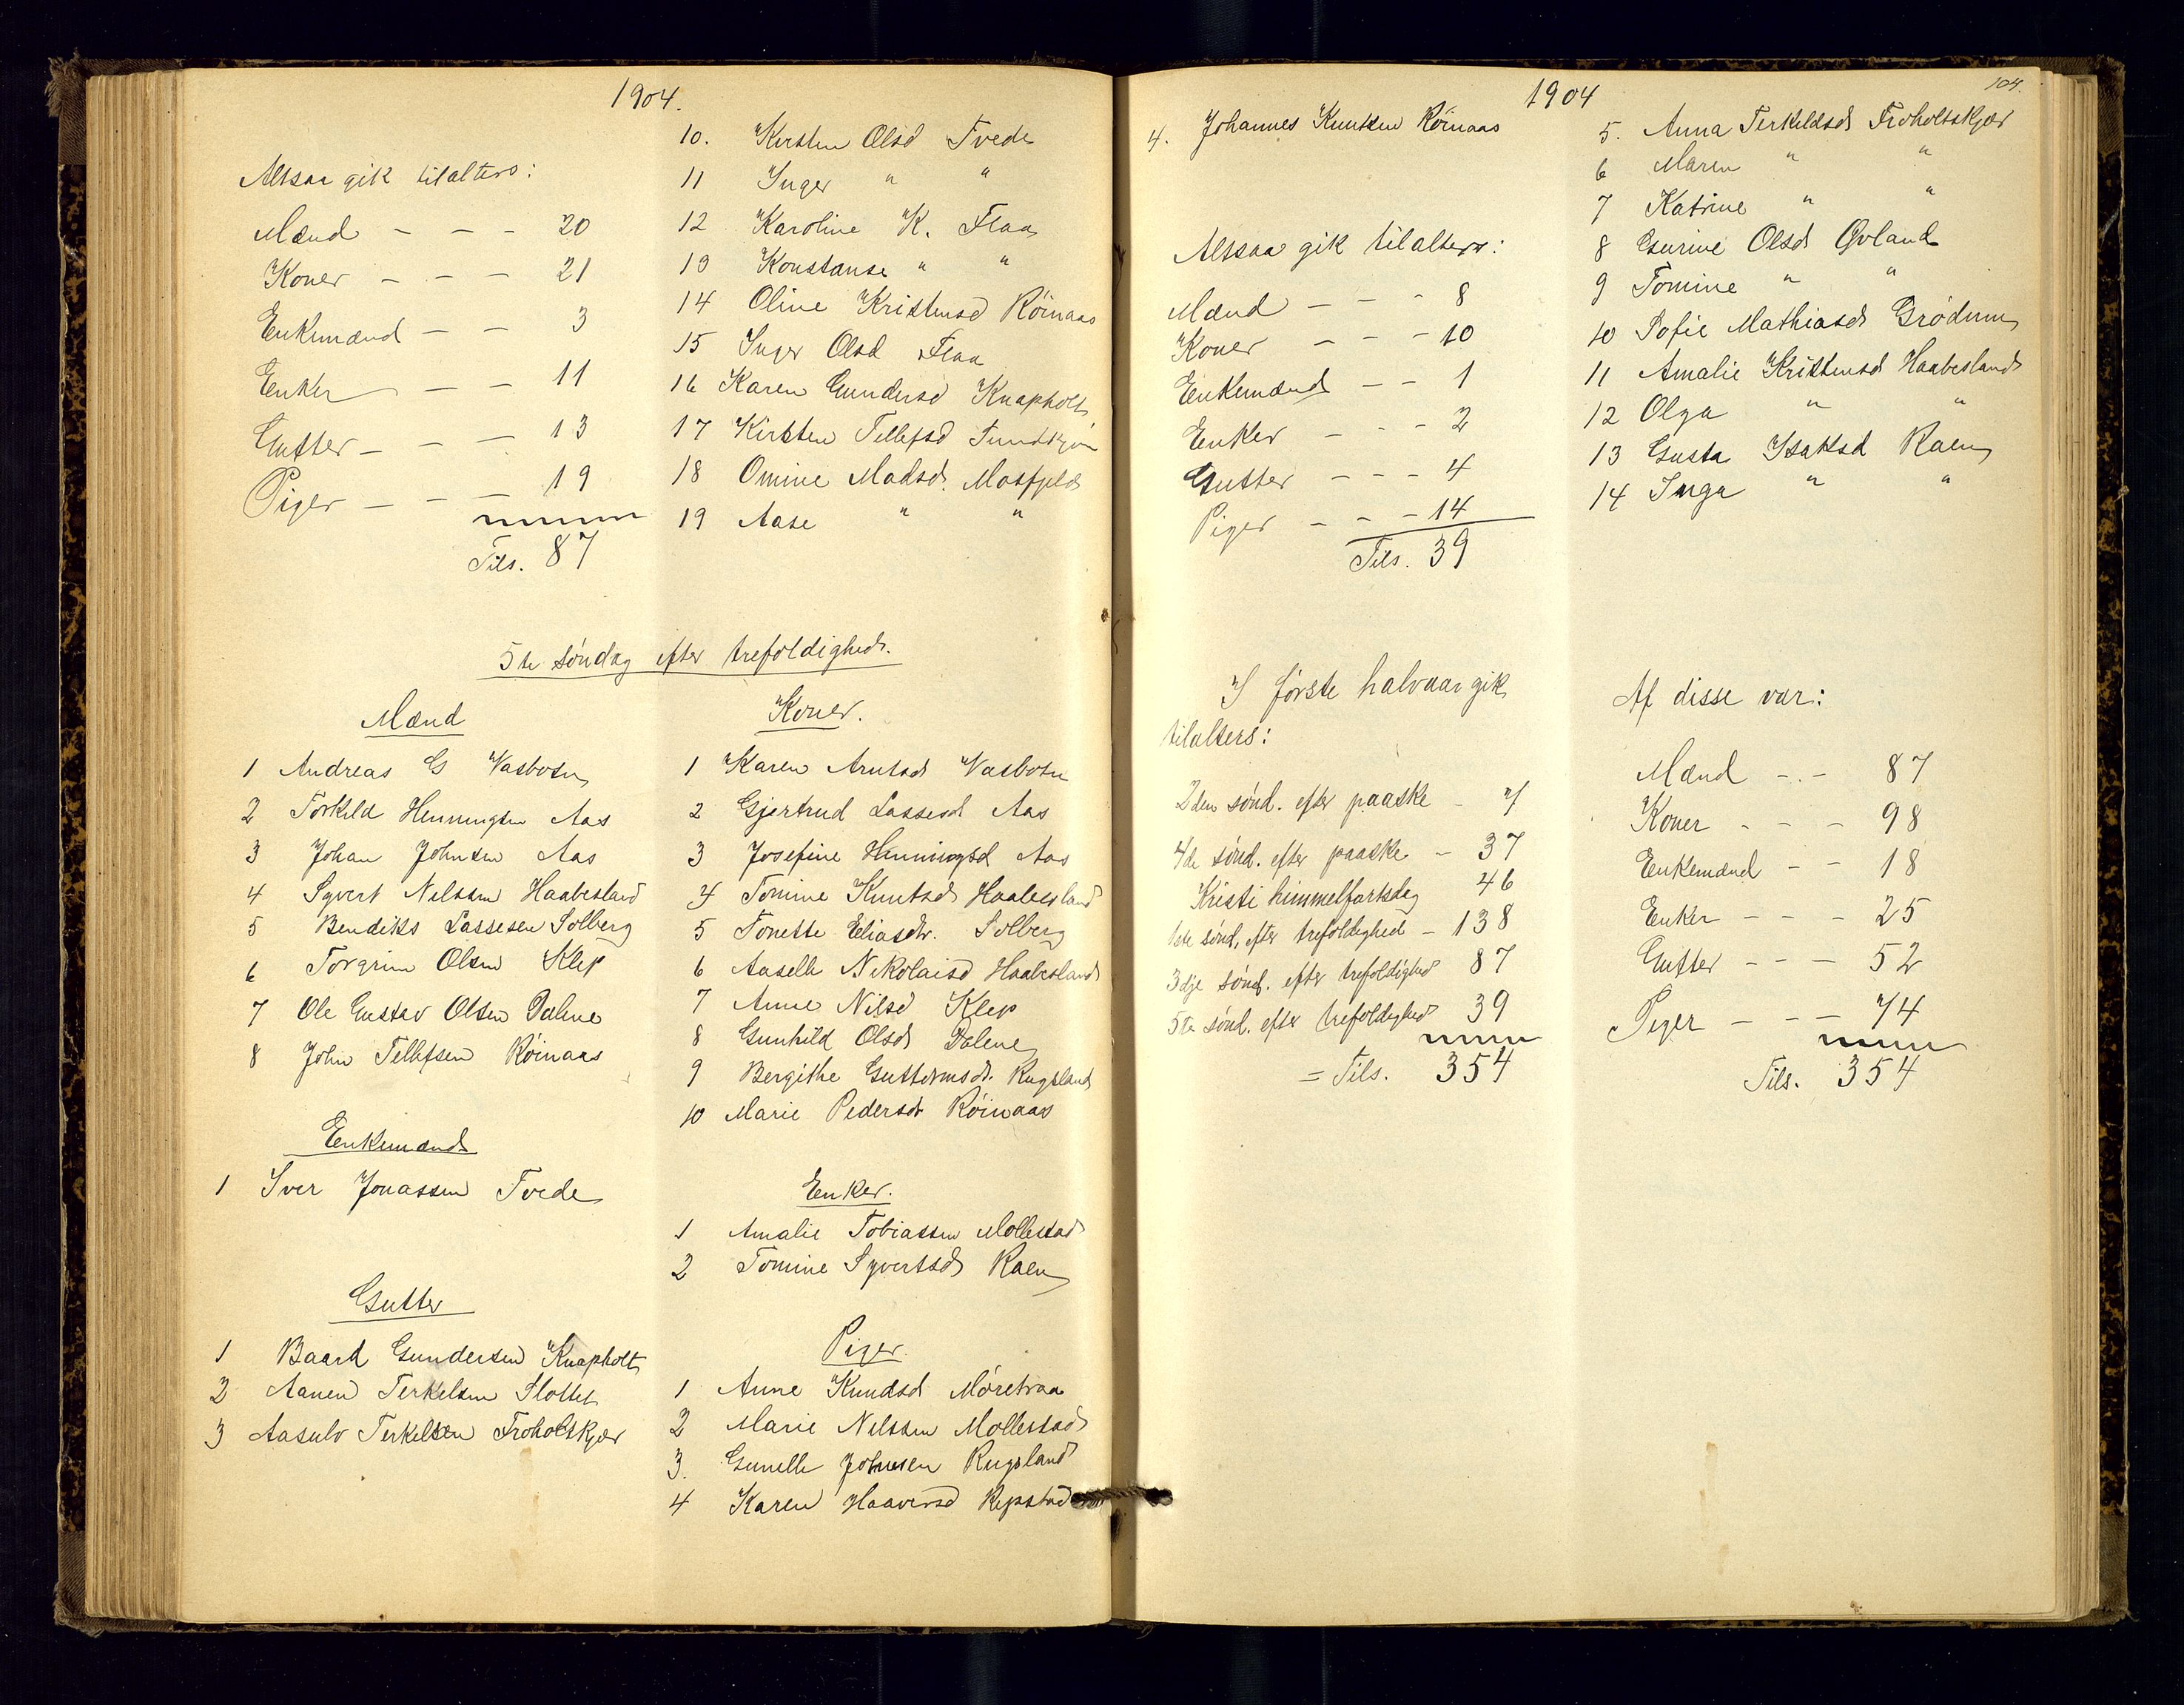 1904.
Altsaa gik tilalters:
Mænd - - - 20
Koner - - - 21
Enkemænd - - 3
Enker - - 11
Gutter - - - 13
Piger - - - 19
Tils. 87
10. Kirsten Olsd Tvede
11 Inger " "
12 Karoline K. Flaa
13 Konstanse " "
14 Oline Kristensd Röinaas
15 Inger Olsd Flaa
16 Karen Gundersd Knapholt
17 Kirsten Tellefsd
18 Omine Madsd. Mosfjeld
19 Aase " "
5te söndag efter trefoldighed.
Mænd
1 Andreas G Vasbotn
2 Torkild Henningsen Aas
3 Johan Johnsen Aas
4 Syvert Nilssen Haabesland
5 Bendiks Lassesen Solberg
6 Torgrim Olsen Klep
7 Ole Gustav Olsen Dalene
8 John Tellefsen Röinaas
Enkemænd
1 Iver Jonassen Tvede
Gutter
1 Baard Gundersen Knapholt
2 Aanen Terkelsen Slottet
3 Aasulv Terkelsen Froholtskjær
Koner.
1 Karen Arntsd Vasbotn
2 Gjertrud Lassesd Aas
3 Josefine Henningsd Aas
4 Tomine Knutsd Haabesland
5 Tonette Eliasdtr. Solberg
6 Aaselle Nikolaisd Haabesland
7 Anne Nilsd Klep
8 Gunhild Olsd Dalene
9 Bergithe Guttormsd. Rugsland
10 Marie Pedersd Röinaas
Enker.
1 Amalie Tobiassen Mollestad
2 Tomine Syvertsd Raen
Piger
1 Anne Knudsd Möretraa
2 Marie Nilssen Mollestad
3. Gunelle Johnsen Rugsland
4 Karen Haaversd Repstad
1904
104.
4. Johannes Knutsen Röinaas
Altsaa gik tilalters:
Mænd - - - 8
Koner - - - 10
Enkemænd - - 1
Enker - - - 2
Gutter - - - 4
Piger - - - 14
Tils. 39
5. Anna Terkildsd Froholtskjær
6 Maren " "
7 Katrine " "
8 Gurine Olsd Øvland
9 Tomine " "
10 Sofie Mathiasd Grödum
11 Amalie Kristensd Haabesland
12 Olga " "
13 Gusta Isaksd Raen
14 Inga " "
I förste halvaar gik
tilalters:
2den sönd. efter paaske - 7
4de sönd. efter paaske - 37
Kristi himmelfartsdag 46
1ste sönd. efter trefoldighed - 138
3dje sönd. efter trefoldighed 87
5te sönd. efter trefoldighed 39
= Tils. 354
Af disse var:
Mænd - - 87
Koner - - - 98
Enkemænd - - 18
Enker - - - 25
Gutter - - - 52
Piger - - - 74
Tils. 354